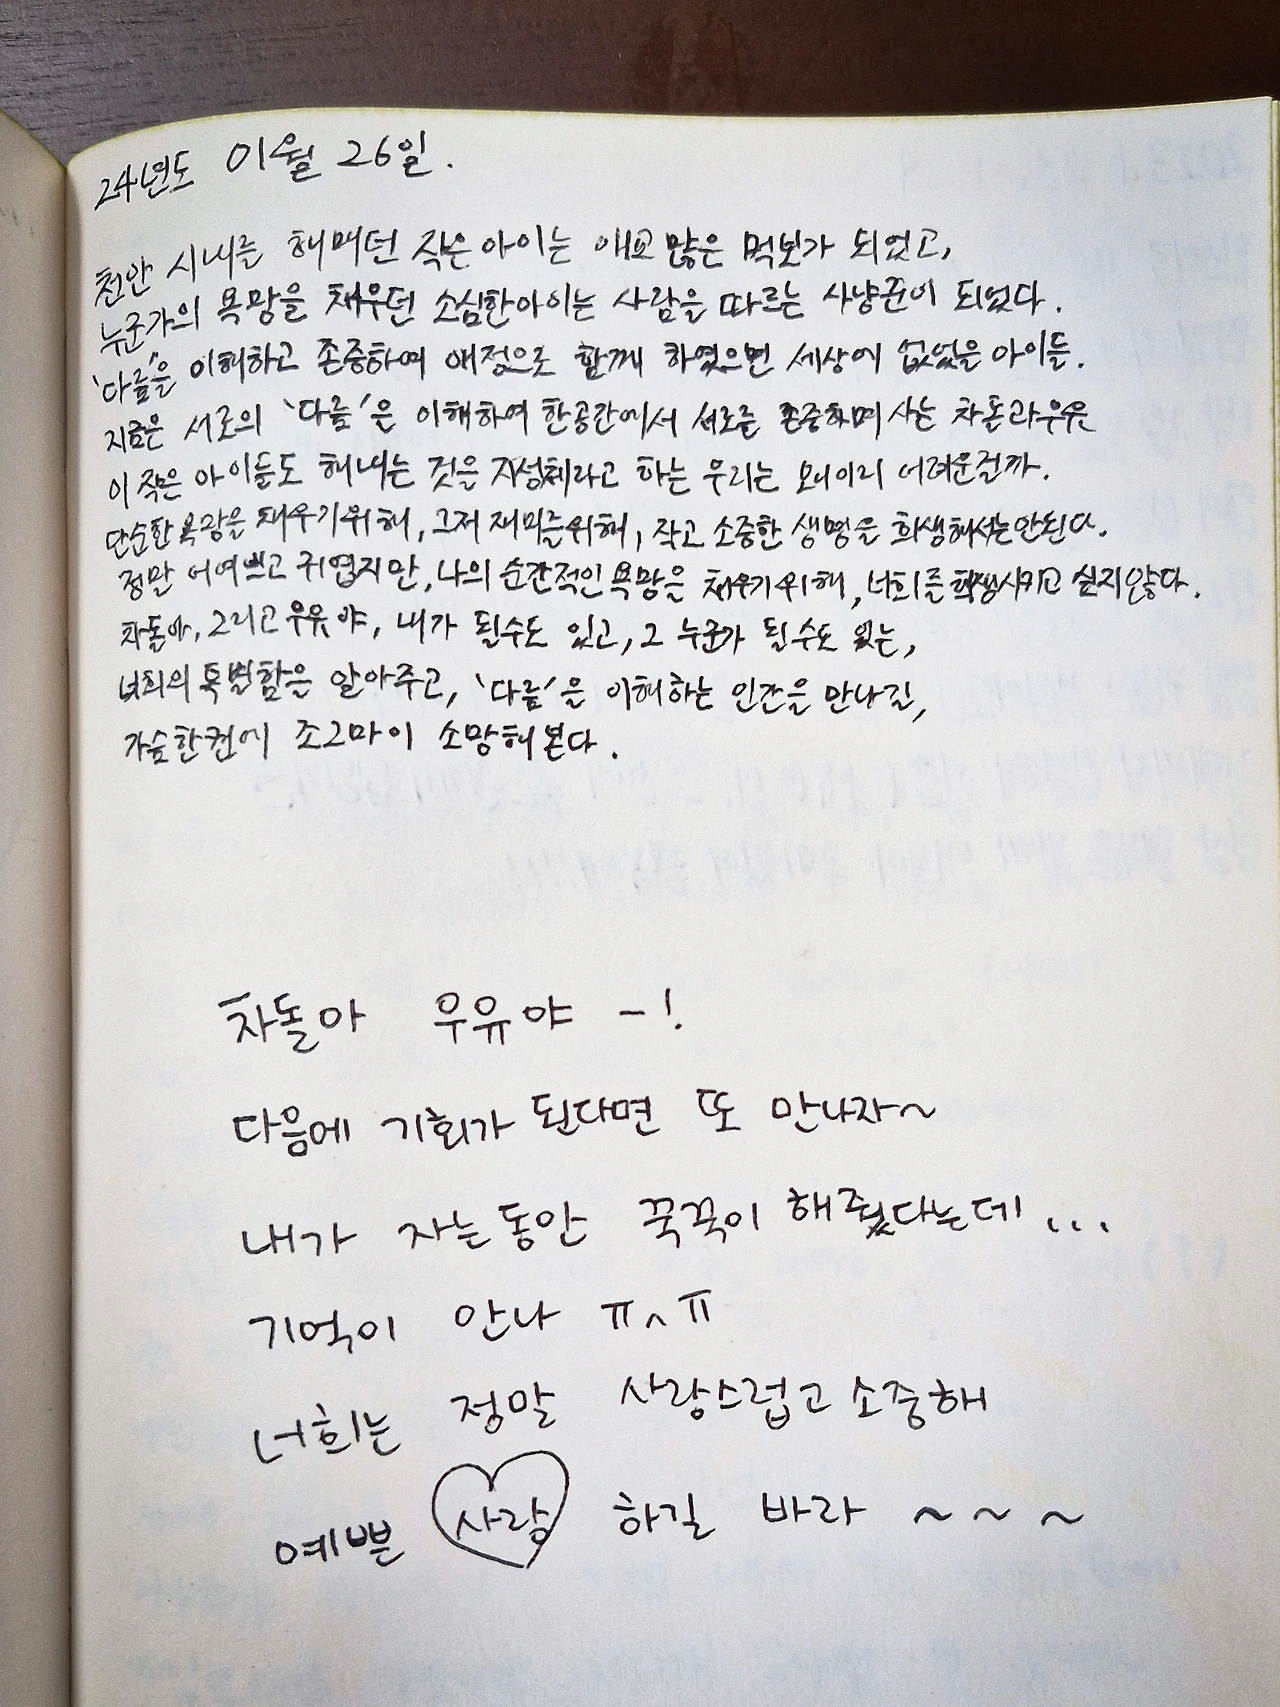 24년도 01월 26일.
천안 시내를 헤매던 작은아이는 애교 많은 먹보가 되었고,
누군가의 욕망을 채우던 소심한아이는 사람을 따르는 사냥꾼이 되었다.
'다름'을 이해하고 존중하여 애정으로 함께 하였으면 세상에 없었을 아이들.
지금은 서로의 '다름'은 이해하여 한공간에서 서로를 존중하며 사는 차돌과우유
이 작은 아이들도 해내는 것을 지성체라고 하는 우리는 뭐이리 어려운걸까.
단순한 욕망을 채우기위해, 그저 재미를위해, 작고 소중한 생명을 희생해서는안된다.
정말 어여쁘고 귀엽지만, 나의 순간적인 욕망을 채우기위해, 너희를 희생시키고 싶지않다.
차돌아, 그리고 우유야, 내가 될수도 있고, 그 누군가 될수도 있는,
너희의 특별함을 알아주고, '다름'을 이해하는 인간을 만나길,
가슴한켠에 조그마이 소망해본다.
차돌아 우유야 -!
다음에 기회가 된다면 또 만나자~
내가 자는동안 꾹꾹이 해줬다는데...
기억이 안나 ㅠㅅㅠ
너희는 정말 사랑스럽고 소중해
예쁜 사랑 하길 바라 ~ ~ ~